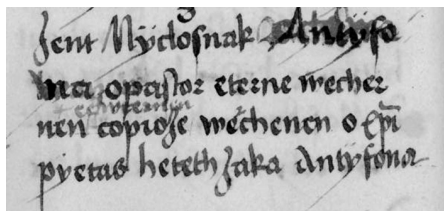 zent Nyclosnak Antyfo
na opastor eterne wecher
nen copioze wechenen o xpi
pyetas heteth zaka Antyfona